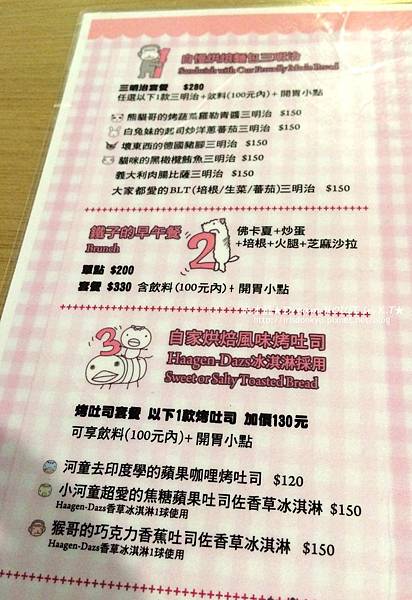 1
自慢烘焙麵包三明治
Sandwich with Our Proudly Made Bread
三明治套餐 $280
任選以下1款三明治+飲料(100元內)+ 開胃小點
熊貓哥的烤蔬菜羅勒青醬三明治 $150
白兔妹的起司炒洋蔥蕃茄三明治 $150
壞東西的德國豬腳三明治 $150
貓咪的黑橄欖鮪魚三明治 $150
義大利肉腸比薩三明治 $150
大家都愛的BLT(培根/生菜/蕃茄)三明治 $150
鐵子的早午餐
Brunch
2
佛卡夏+炒蛋
+培根+火腿+芝麻沙拉
單點 $200
套餐 $330 含飲料(100元內)+ 開胃小點
3
自家烘焙風味烤吐司
Haagen-Dazs冰淇淋採用
Sweet or Salty Toasted Bread
烤吐司套餐 以下1款烤吐司 加價130元
可享飲料(100元內)+ 開胃小點
河童去印度學的蘋果咖哩烤吐司 $120
小河童超愛的焦糖蘋果吐司佐香草冰淇淋 $150
Haagen-Dazs香草冰淇淋1球使用
猴哥的巧克力香蕉吐司佐香草冰淇淋 $150
Haagen-Dazs香草冰淇淋1球使用